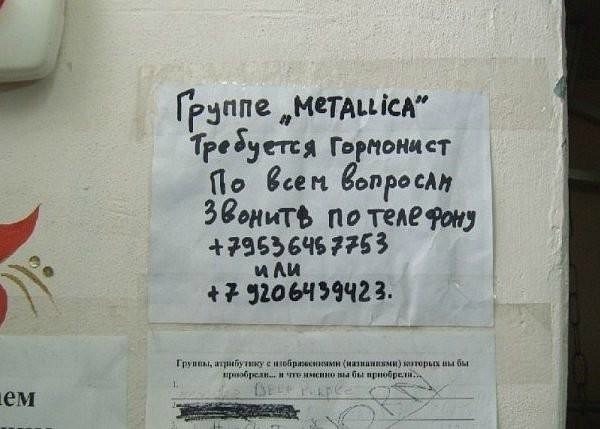 Группе „METALLiCA"
Требуется Гормонист
По всем вопросам
Звонитв по телефону
+79536457753
или
+7 9206439423.
Группы, атрибутику с изображениями (названиями) которых вы бы
приобрели... и что именно вы бы приобрели...
1.
DEEP PURPLE
KORN
аем